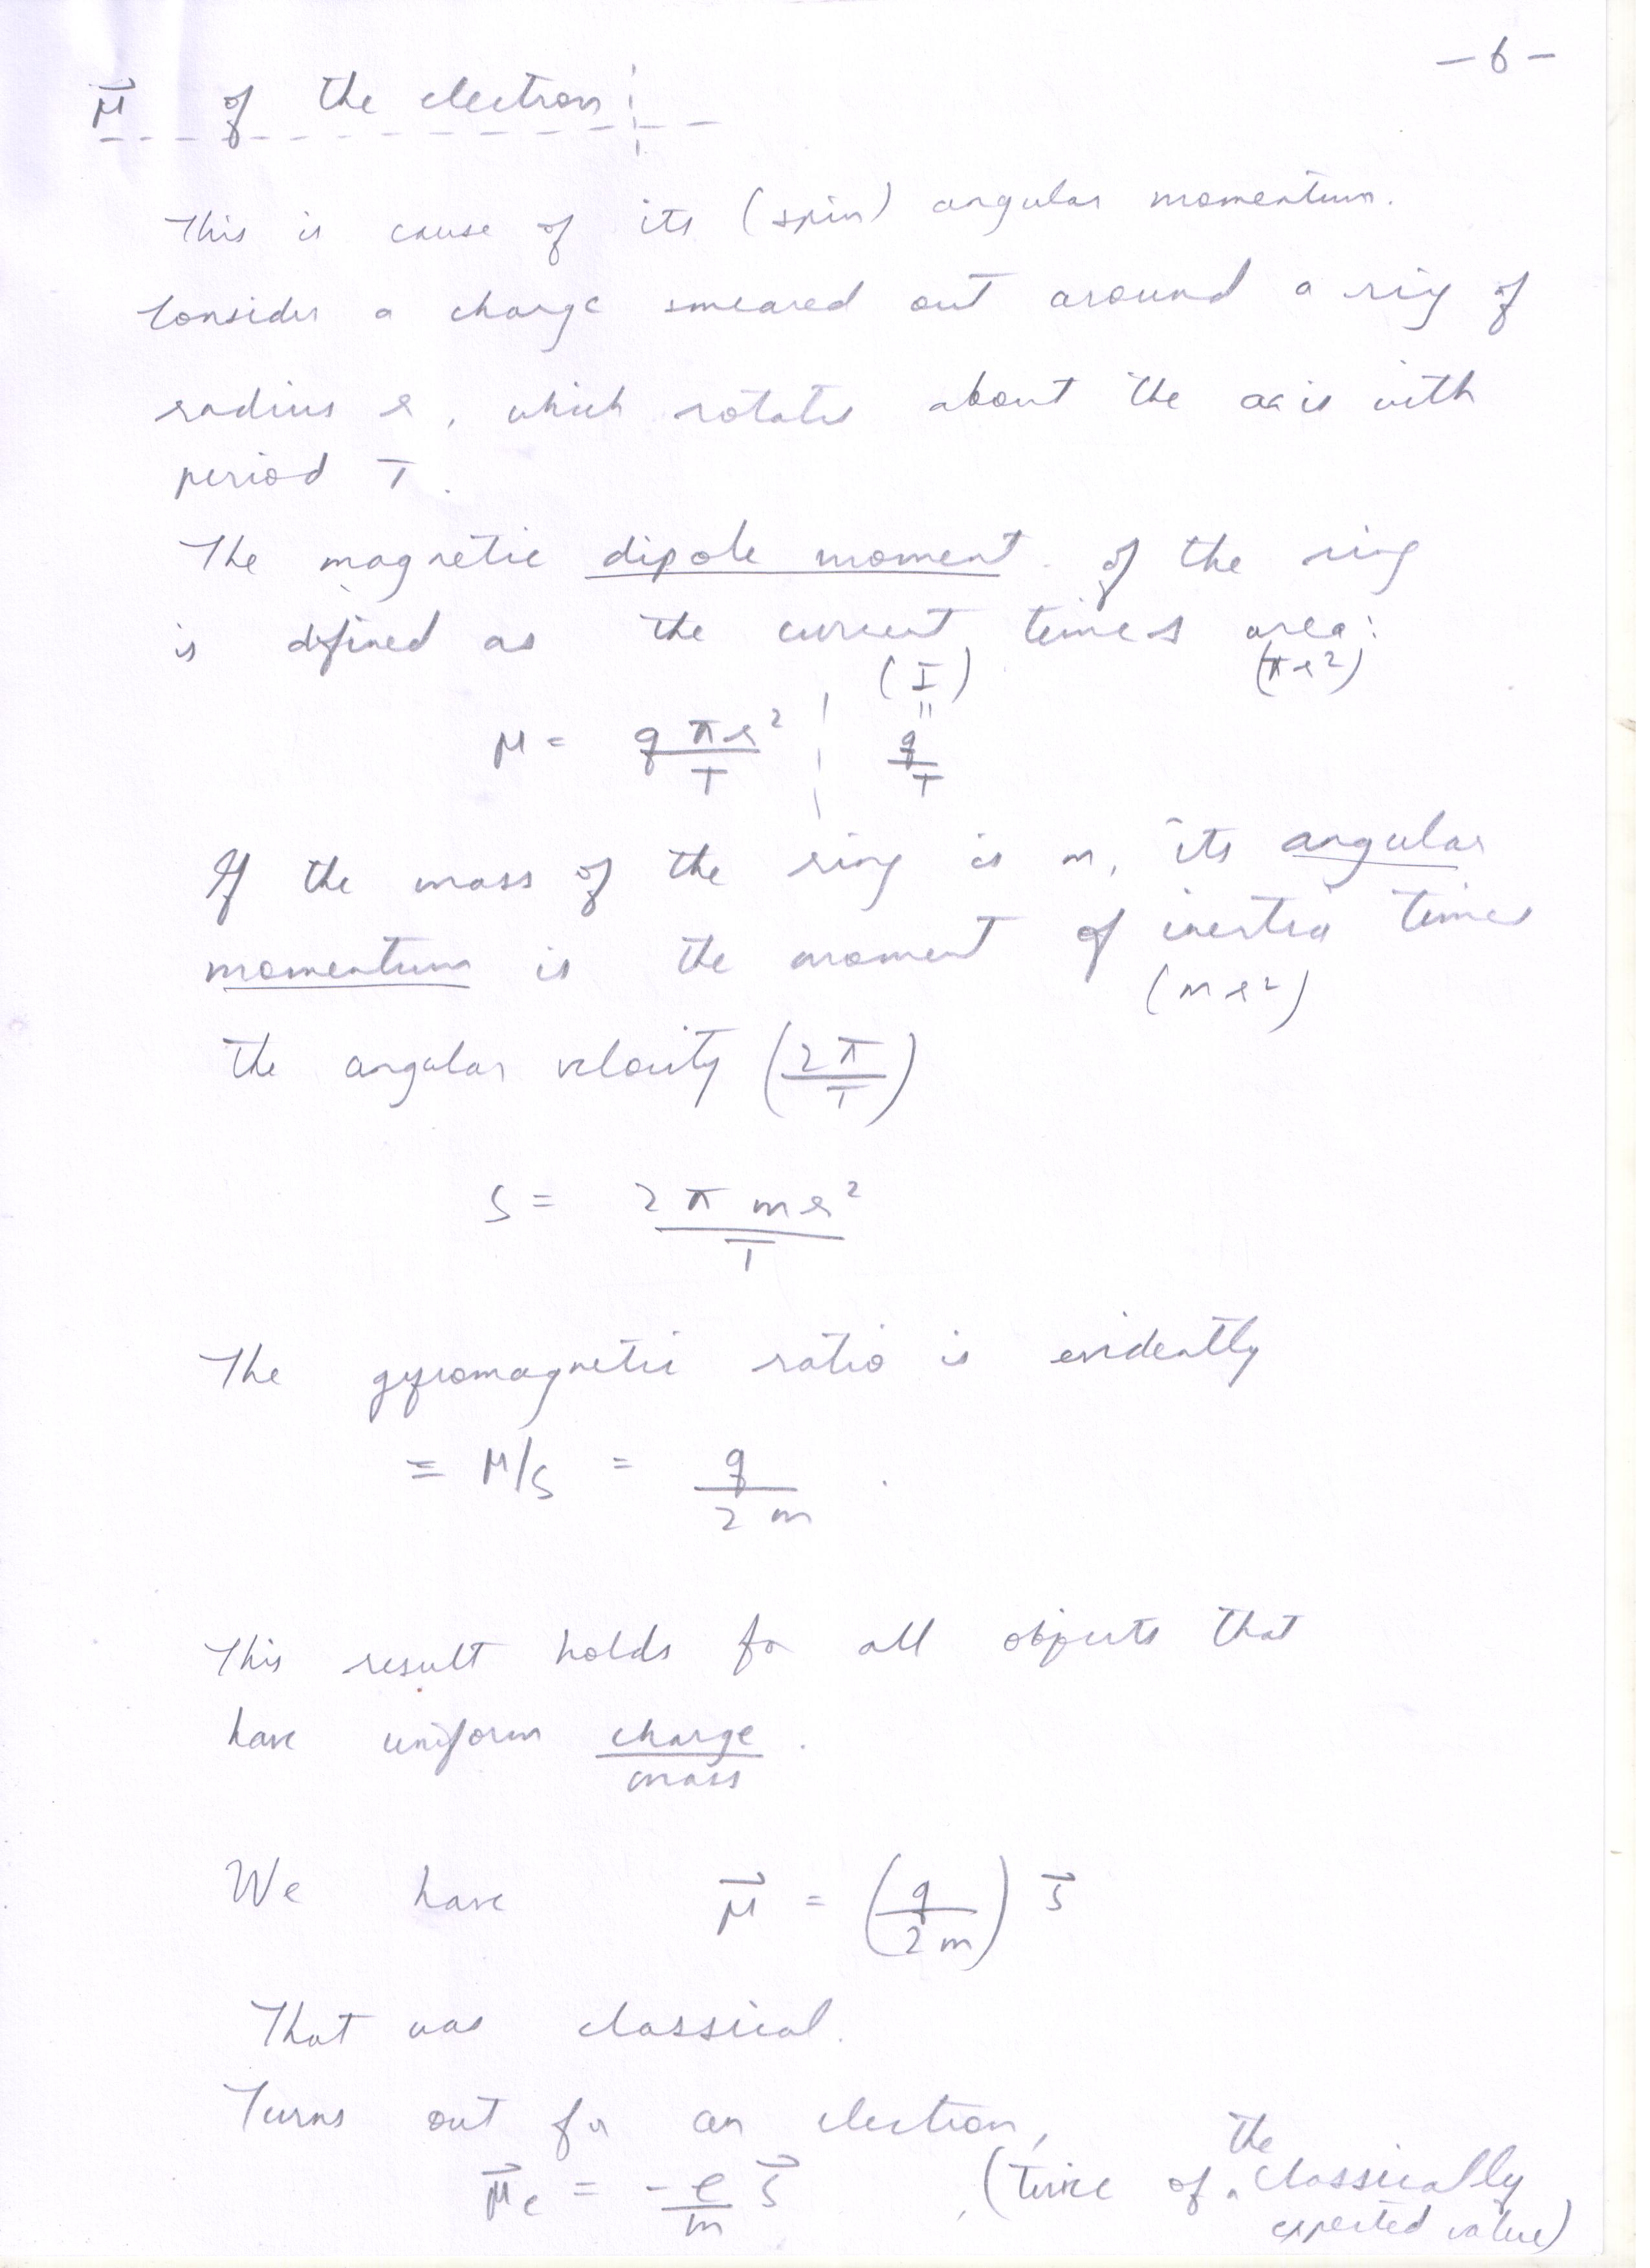 -6-
μ⃗ of the electron:
This is cause of its (spin) angular momentum.
Consider a charge smeared out around a ring of
radius r, which rotates about the axis with
period T.
The magnetic dipole moment of the ring
is defined as the current times area:
(I) (πr²)
μ = qπr²/T | = q/T
If the mass of the ring is m, its angular
momentum is the moment of inertia times
(mr²)
the angular velocity (2π/T)
S = 2πmr²/T
The gyromagnetic ratio is evidently
= μ/S = q/2m.
This result holds for all objects that
have uniform charge/mass.
We have μ⃗ = (q/2m) S⃗
That was classical.
Turns out for an electron,
μ⃗e = -e/m S⃗ , (twice of the classically
expected value)